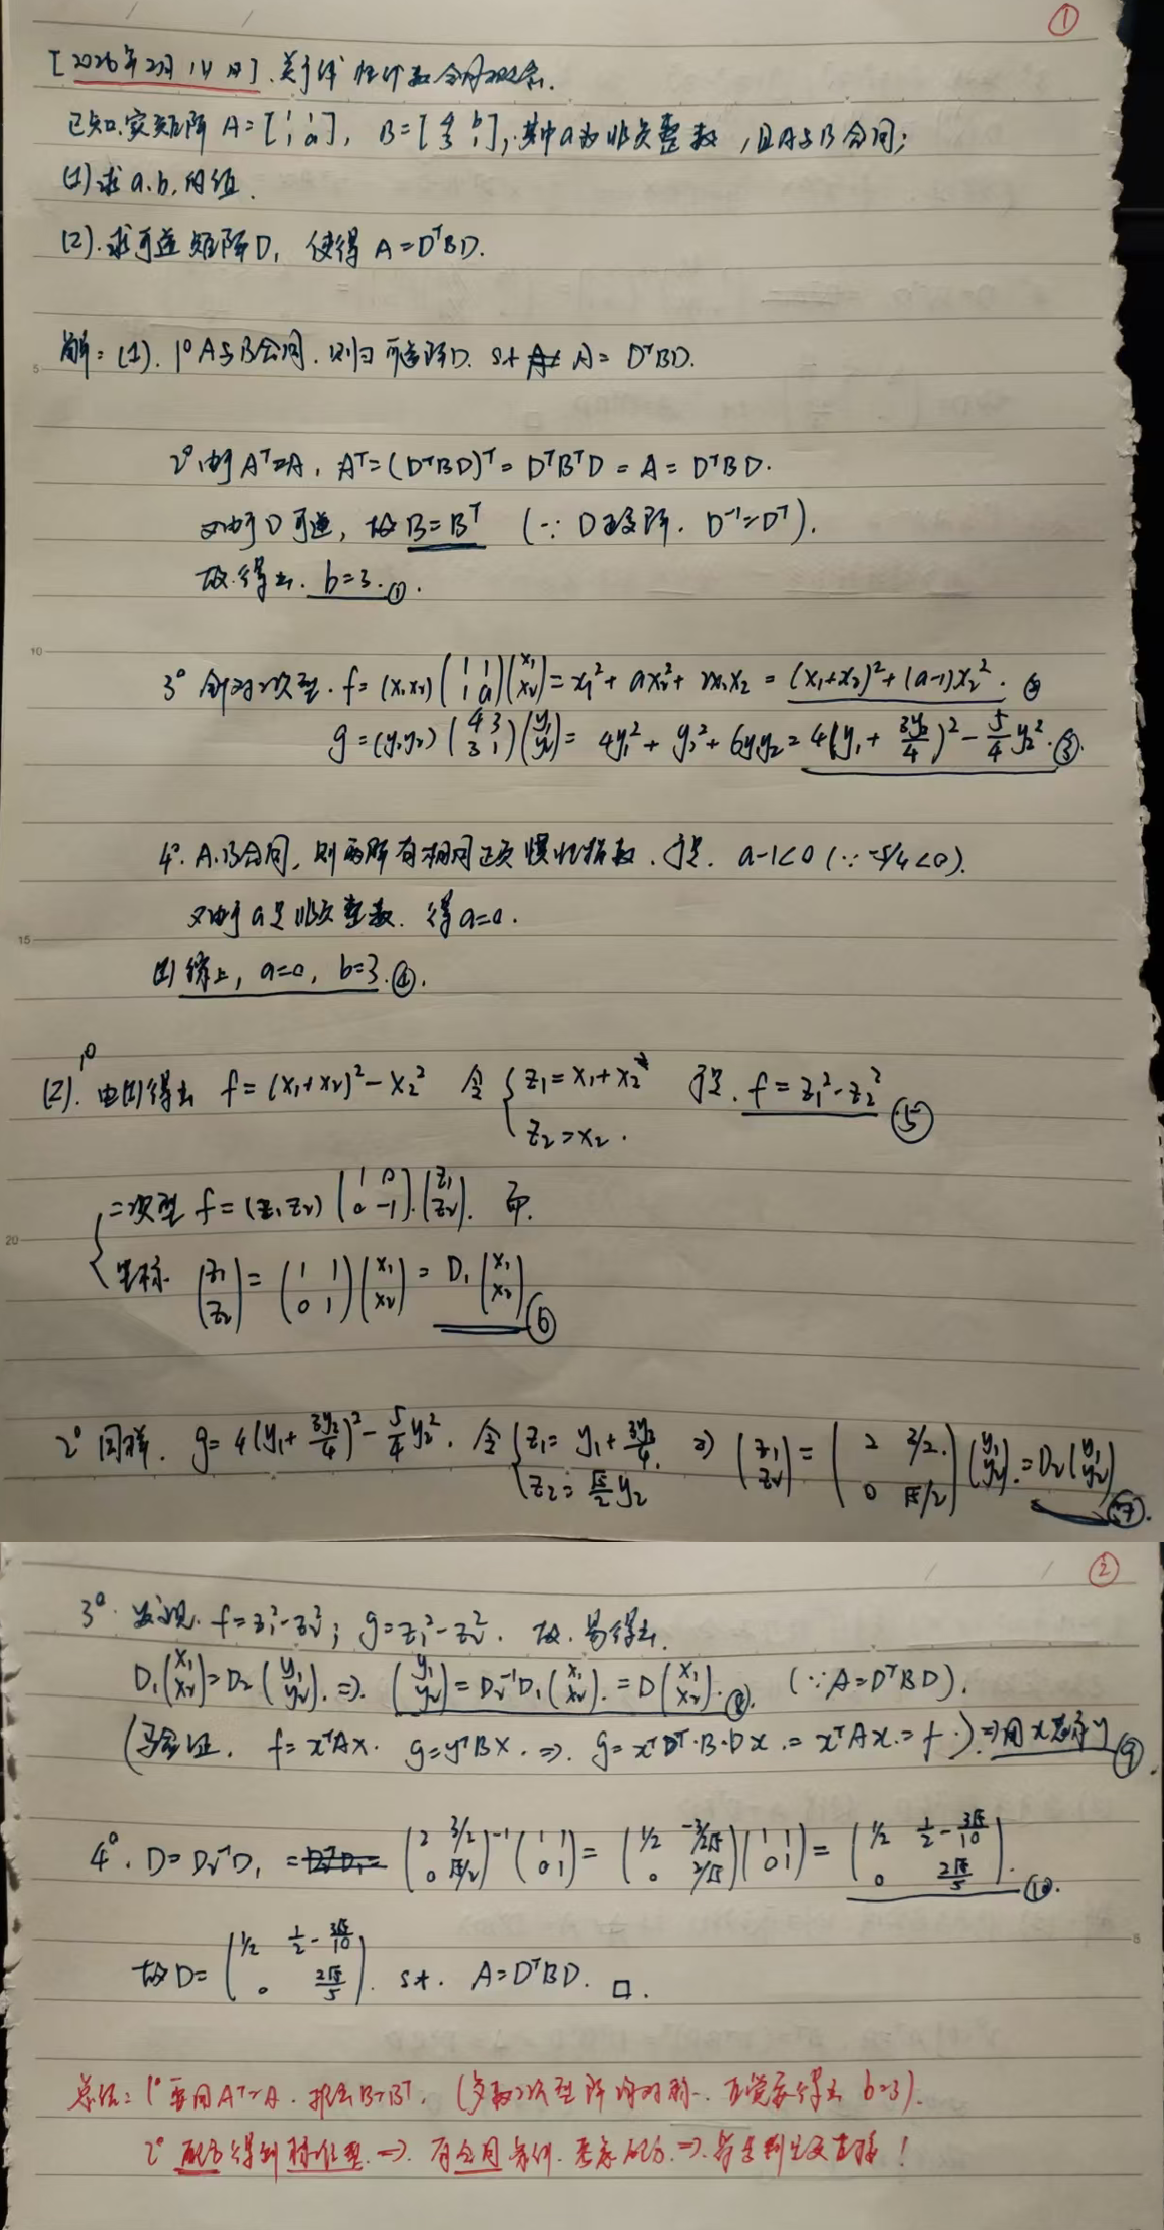 ①
[2026年2月14日].关于线性代数合同概念.
已知.实矩阵 A=[1 1; 1 a], B=[4 b; 3 1],其中a为非负整数,且A与B合同;
(1)求a.b,的值.
(2).求可逆矩阵D, 使得 A=DᵀBD.
解:(1). 1° A与B合同.则∃可逆阵D. st A= DᵀBD.
2° 由于Aᵀ=A, Aᵀ=(DᵀBD)ᵀ= DᵀBᵀD = A = DᵀBD.
又由于D可逆, 故 B=Bᵀ (∵ D正交阵. D⁻¹=Dᵀ).
故.得出. b=3.①.
3° 针对二次型. f=(x₁x₂)(1 1; 1 a)(x₁; x₂)=x₁²+ax₂²+2x₁x₂ = (x₁+x₂)²+(a-1)x₂². ②
g=(y₁y₂)(4 3; 3 1)(y₁; y₂)= 4y₁²+y₂²+6y₁y₂=4(y₁+3y₂/4)²-5/4y₂².③.
4°. A.B合同, 则两阵有相同正负惯性指数.于是. a-1<0 (∵-5/4<0).
又由于a是非负整数. 得a=0.
(1) 综上, a=0, b=3.④.
(2). 1° 由(1)得出 f=(x₁+x₂)²-x₂² 令{z₁=x₁+x₂ 于是. f=z₁²-z₂² ⑤
z₂=x₂.
二次型 f=(z₁z₂)(1 0; 0 -1).(z₁; z₂). 而.
坐标. (z₁; z₂)=(1 1; 0 1)(x₁; x₂)= D₁(x₁; x₂) ⑥
2° 同样. g=4(y₁+3y₂/4)²-5/4y₂². 令{z₁= y₁+3y₂/4. ⇒ (z₁; z₂)=(2 3/2.; 0 √5/2)(y₁; y₂).=D₂(y₁; y₂) ⑦.
z₂=√5/2 y₂
②
3°. 发现. f=z₁²-z₂²; g=z₁²-z₂². 故.易得出.
D₁(x₁; x₂)=D₂(y₁; y₂). ⇒. (y₁; y₂)=D₂⁻¹D₁(x₁; x₂).=D(x₁; x₂).⑧. (∵A=DᵀBD).
(验证. f=xᵀAx. g=yᵀBx. ⇒. g=xᵀDᵀ·B·Dx.= xᵀAx.=f.).⇒用x表示y ⑨.
4°. D=D₂⁻¹D₁ = (2 3/2; 0 √5/2)⁻¹(1 1; 0 1)=(1/2 -3/2√5; 0 2/√5)(1 1; 0 1)=(1/2 1/2-3√5/10; 0 2√5/5).⑩.
故D=(1/2 1/2-3√5/10; 0 2√5/5). st. A=DᵀBD. □.
总结: 1° 要用Aᵀ=A. 推出B=Bᵀ. (多数二次型阵均对称.直觉要得出 b=3).
2° 配方得到标准型.⇒. 有合同条件.考虑配方.⇒.